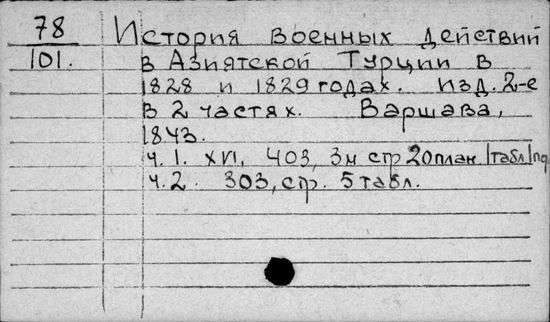 78 История военных действий
101. в Азиятской Турции в
1828 и 1829 годах. изд. 2-е
в 2 частях. Варшава,
1843.
ч. 1. XVI, 403, 3м стр 20 план. 1 табл
ч. 2. 303, стр. 5 табл.